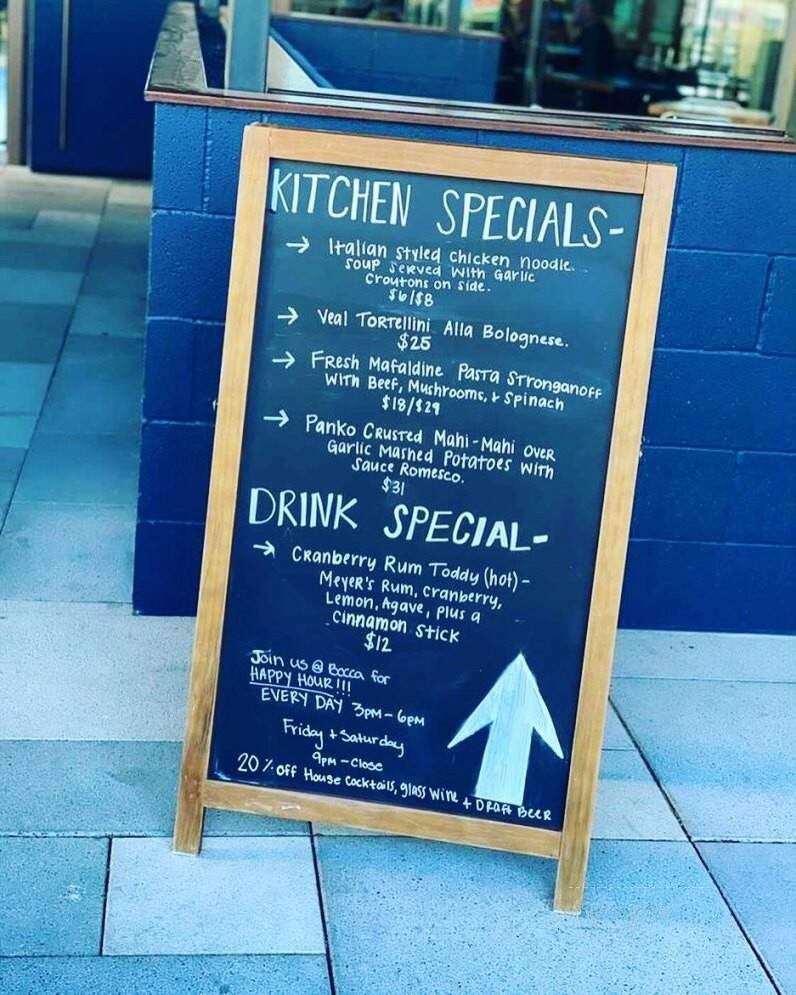 KITCHEN SPECIALS-
→ Italian styled chicken noodle
soup served with Garlic
Croutons on side.
$6/$8
→ Veal Tortellini Alla Bolognese.
$25
→ Fresh Mafaldine Pasta Stronganoff
with Beef, Mushrooms, + Spinach
$18/$29
→ Panko Crusted Mahi-Mahi over
Garlic Mashed Potatoes with
Sauce Romesco.
$31
DRINK SPECIAL-
→ Cranberry Rum Toddy (hot)-
Meyer's Rum, cranberry,
Lemon, Agave, plus a
Cinnamon stick
$12
Join us @ Bocca for
HAPPY HOUR!!!
EVERY DAY 3pm-6pm
Friday + Saturday
9pm-close
20% off House Cocktails, glass wine + Draft Beer